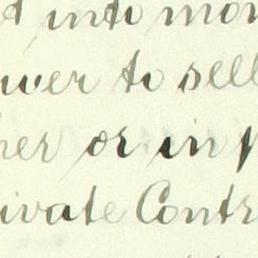 into mon
wer to sell
her or in p
ivate Contr